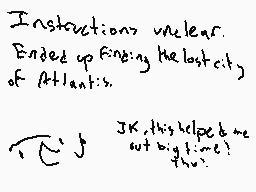 Instructions unclear.
Ended up finding the lost city
of Atlantis.
JK, this helped me
out big time!
Thx!